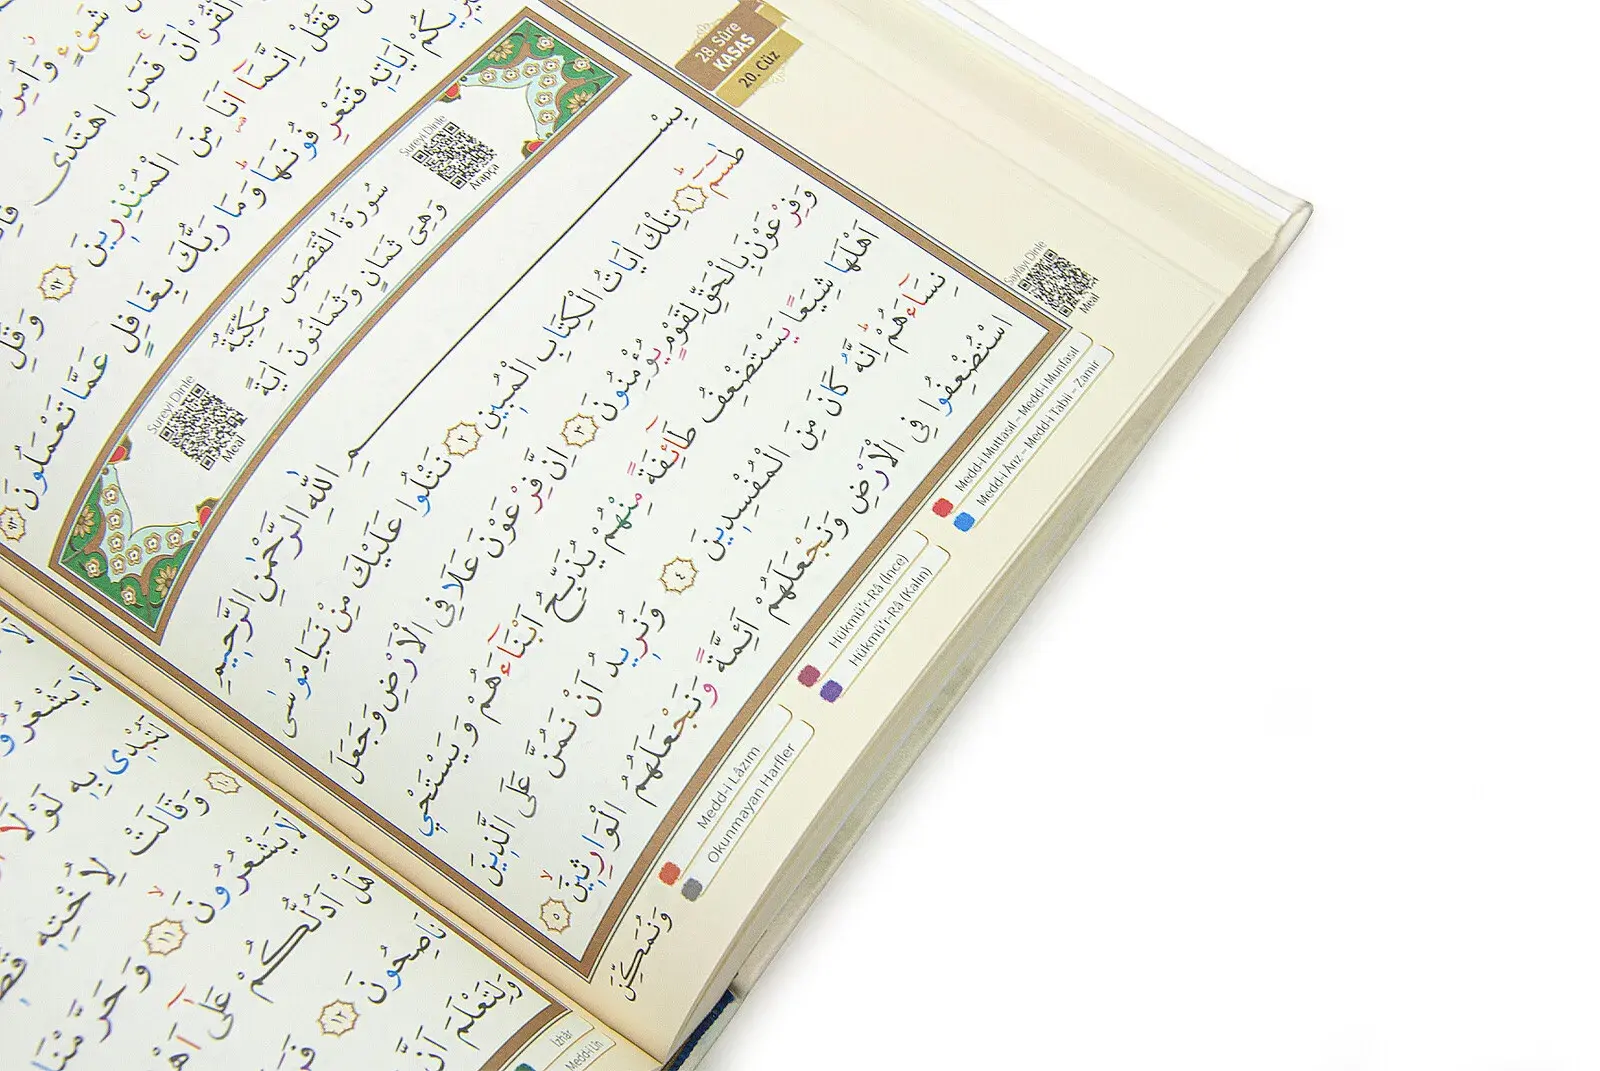 28. Sûre
KASAS
20. Cüz
شَىْءٍ وَاُمِرْ
الْقُرْاٰنَ فَمَنِ اهْتَدٰى
فَقُلْ اِنَّمَٓا اَنَا۬ مِنَ الْمُنْذِر۪ينَ ﴿٩٢﴾ وَقُلِ
سَيُر۪يكُمْ اٰيَاتِه۪ فَتَعْرِفُونَهَاۜ وَمَا رَبُّكَ بِغَافِلٍ عَمَّا تَعْمَلُونَ ﴿٩٣﴾
Sureyi Dinle
Arapça
سُورَةُ الْقَصَصِ مَكِّيَّةٌ
وَهِىَ ثَمَانٍ وَثَمَانُونَ اٰيَةً
Sureyi Dinle
Meal
بِسْمِ اللّٰهِ الرَّحْمٰنِ الرَّح۪يمِ
طٰسٓمٓ ﴿١﴾ تِلْكَ اٰيَاتُ الْكِتَابِ الْمُب۪ينِ ﴿٢﴾ نَتْلُوا عَلَيْكَ مِنْ نَبَأِ مُوسٰى
وَفِرْعَوْنَ بِالْحَقِّ لِقَوْمٍ يُؤْمِنُونَ ﴿٣﴾ اِنَّ فِرْعَوْنَ عَلَا فِي الْاَرْضِ وَجَعَلَ
اَهْلَهَا شِيَعًا يَسْتَضْعِفُ طَٓائِفَةً مِنْهُمْ يُذَبِّحُ اَبْنَٓاءَهُمْ وَيَسْتَحْي۪
نِسَٓاءَهُمْۜ اِنَّهُ كَانَ مِنَ الْمُفْسِد۪ينَ ﴿٤﴾ وَنُر۪يدُ اَنْ نَمُنَّ عَلَى الَّذ۪ينَ
اسْتُضْعِفُوا فِي الْاَرْضِ وَنَجْعَلَهُمْ اَئِمَّةً وَنَجْعَلَهُمُ الْوَارِث۪ينَۙ ﴿٥﴾
وَنُمَكِّنَ
Sayfayı Dinle
Meal
Medd-i Muttasıl – Medd-i Munfasıl
Medd-i Ârız – Medd-i Tabii – Zamir
Hükmü'r-Râ (İnce)
Hükmü'r-Râ (Kalın)
Medd-i Lâzım
Okunmayan Harfler
لَا يَشْعُرُونَ
لَتُبْد۪ي بِه۪ لَوْلَٓا
﴿١٠﴾ وَقَالَتْ لِاُخْتِه۪
لَا يَشْعُرُونَۙ ﴿١١﴾ وَحَرَّمْنَا
هَلْ اَدُلُّكُمْ عَلٰٓى اَهْلِ
نَاصِحُونَ ﴿١٢﴾
وَلِتَعْلَمَ اَنَّ
İzhâr
Medd-i Lîn